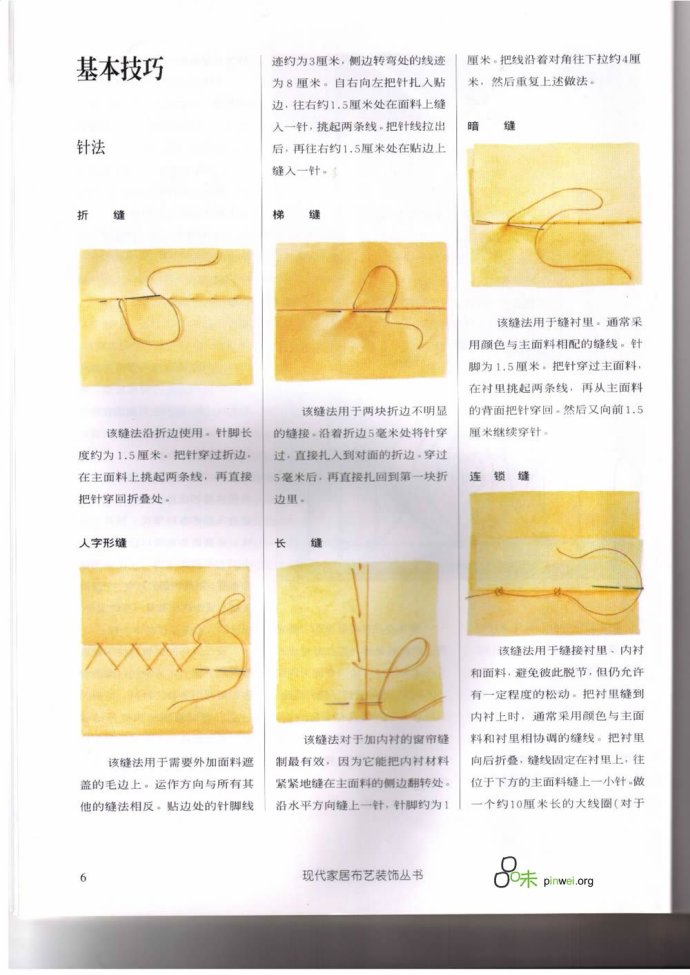 基本技巧
针法
折 缝
该缝法沿折边使用。针脚长
度约为1.5厘米。把针穿过折边,
在主面料上挑起两条线，再直接
把针穿回折叠处。
人字形缝
该缝法用于需要外加面料遮
盖的毛边上。运作方向与所有其
他的缝法相反。贴边处的针脚线
迹约为3厘米，侧边转弯处的线迹
为8厘米。自右向左把针扎入贴
边，往右约1.5厘米处在面料上缝
入一针，挑起两条线。把针线拉出
后，再往右约1.5厘米处在贴边上
缝入一针。
梯 缝
该缝法用于两块折边不明显
的缝接。沿着折边5毫米处将针穿
过，直接扎入到对面的折边。穿过
5毫米后，再直接扎回到第一块折
边里。
长 缝
该缝法对于加内衬的窗帘缝
制最有效，因为它能把内衬材料
紧紧地缝在主面料的侧边翻转处。
沿水平方向缝上一针，针脚约为1
厘米。把线沿着对角往下拉约4厘
米，然后重复上述做法。
暗 缝
该缝法用于缝衬里。通常采
用颜色与主面料相配的缝线。针
脚为1.5厘米。把针穿过主面料，
在衬里挑起两条线，再从主面料
的背面把针穿回。然后又向前1.5
厘米继续穿针。
连 锁 缝
该缝法用于缝接衬里、内衬
和面料，避免彼此脱节，但仍允许
有一定程度的松动。把衬里缝到
内衬上时，通常采用颜色与主面
料和衬里相协调的缝线。把衬里
向后折叠，缝线固定在衬里上，往
位于下方的主面料缝上一小针。做
一个约10厘米长的大线圈(对于
6
现代家居布艺装饰丛书
品味 pinwei.org